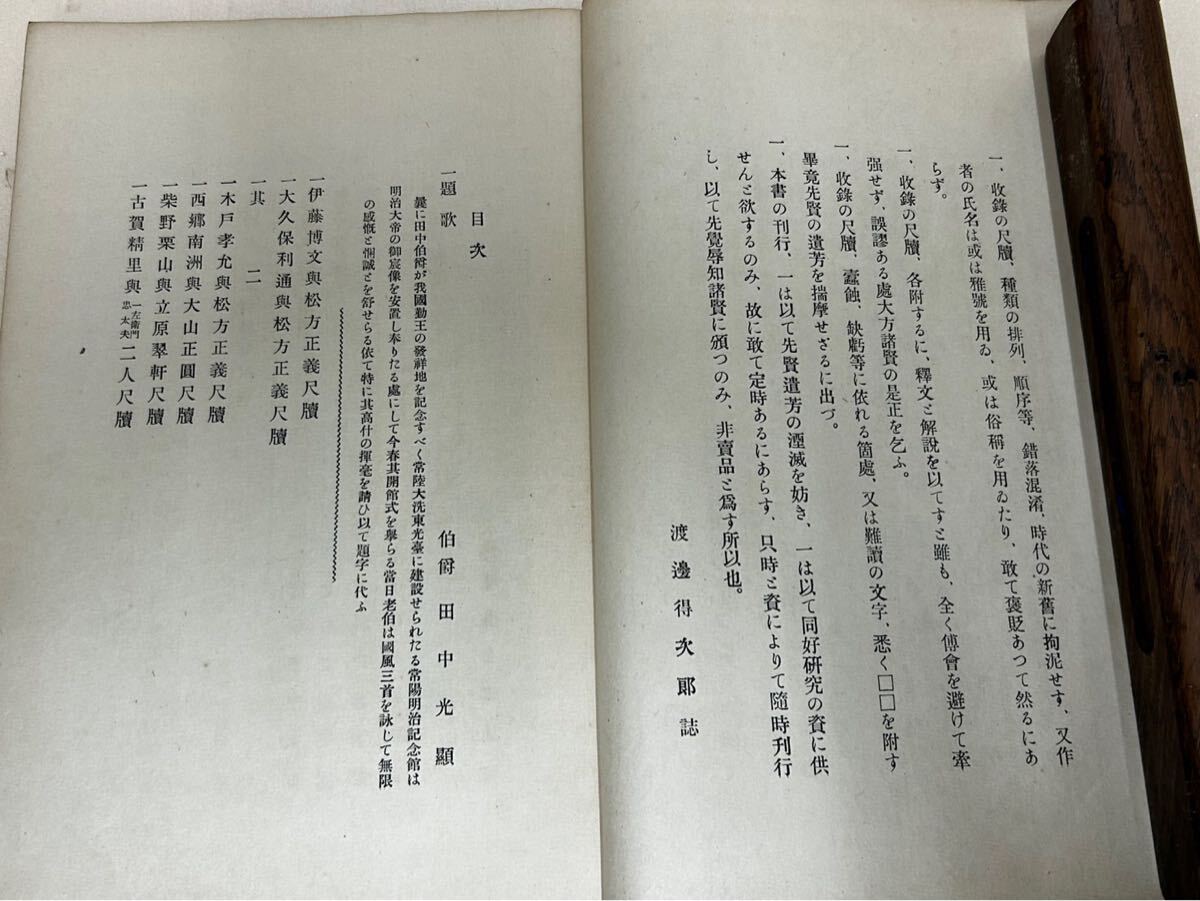 一、收錄の尺牘、種類の排列、順序等、錯落混淆、時代の新舊に拘泥せず、又作
者の氏名は或は雅號を用ゐ、或は俗稱を用ゐたり、敢て褒貶あつて然るにあ
らず。
一、收錄の尺牘、各附するに、釋文と解說を以てすと雖も、全く傅會を避けて牽
强せず、誤謬ある處大方諸賢の是正を乞ふ。
一、收錄の尺牘、蠧蝕、缺虧等に依れる箇處、又は難讀の文字、悉く□□を附す
畢竟先賢の遺芳を揣摩せざるに出づ。
一、本書の刊行、一は以て先賢遺芳の湮滅を妨き、一は以て同好硏究の資に供
せんと欲するのみ、故に敢て定時あるにあらす、只時と資によりて隨時刊行
し、以て先覺辱知諸賢に頒つのみ、非賣品と爲す所以也。
渡邊得次郞誌
目次
一題歌　伯爵田中光顯
曩に田中伯爵が我國勤王の發祥地を記念すべく常陸大洗東光臺に建設せられたる常陽明治記念館は
明治大帝の御宸像を安置し奉りたる處にして今春其開館式を擧らる當日老伯は國風三首を詠じて無限
の感慨と悃誠とを舒せらる依て特に其高什の揮毫を請ひ以て題字に代ふ
一伊藤博文與松方正義尺牘
一大久保利通與松方正義尺牘
一其二
一木戸孝允與松方正義尺牘
一西鄕南洲與大山正圓尺牘
一柴野栗山與立原翠軒尺牘
一古賀精里與一左衞門忠太夫二人尺牘